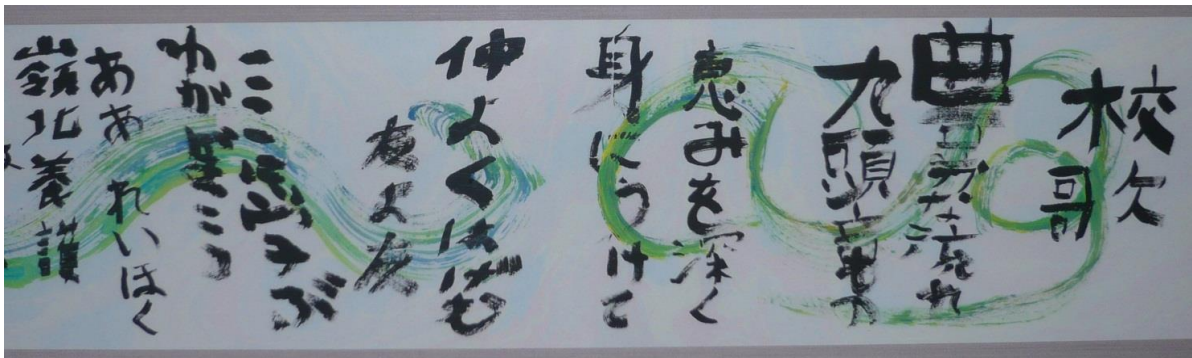 校歌
豊かな流れ
九頭竜の
恵みを深く
身にうけて
仲よくはげむ
友よ友
ここ
わが
ああ れいほく
嶺北養護